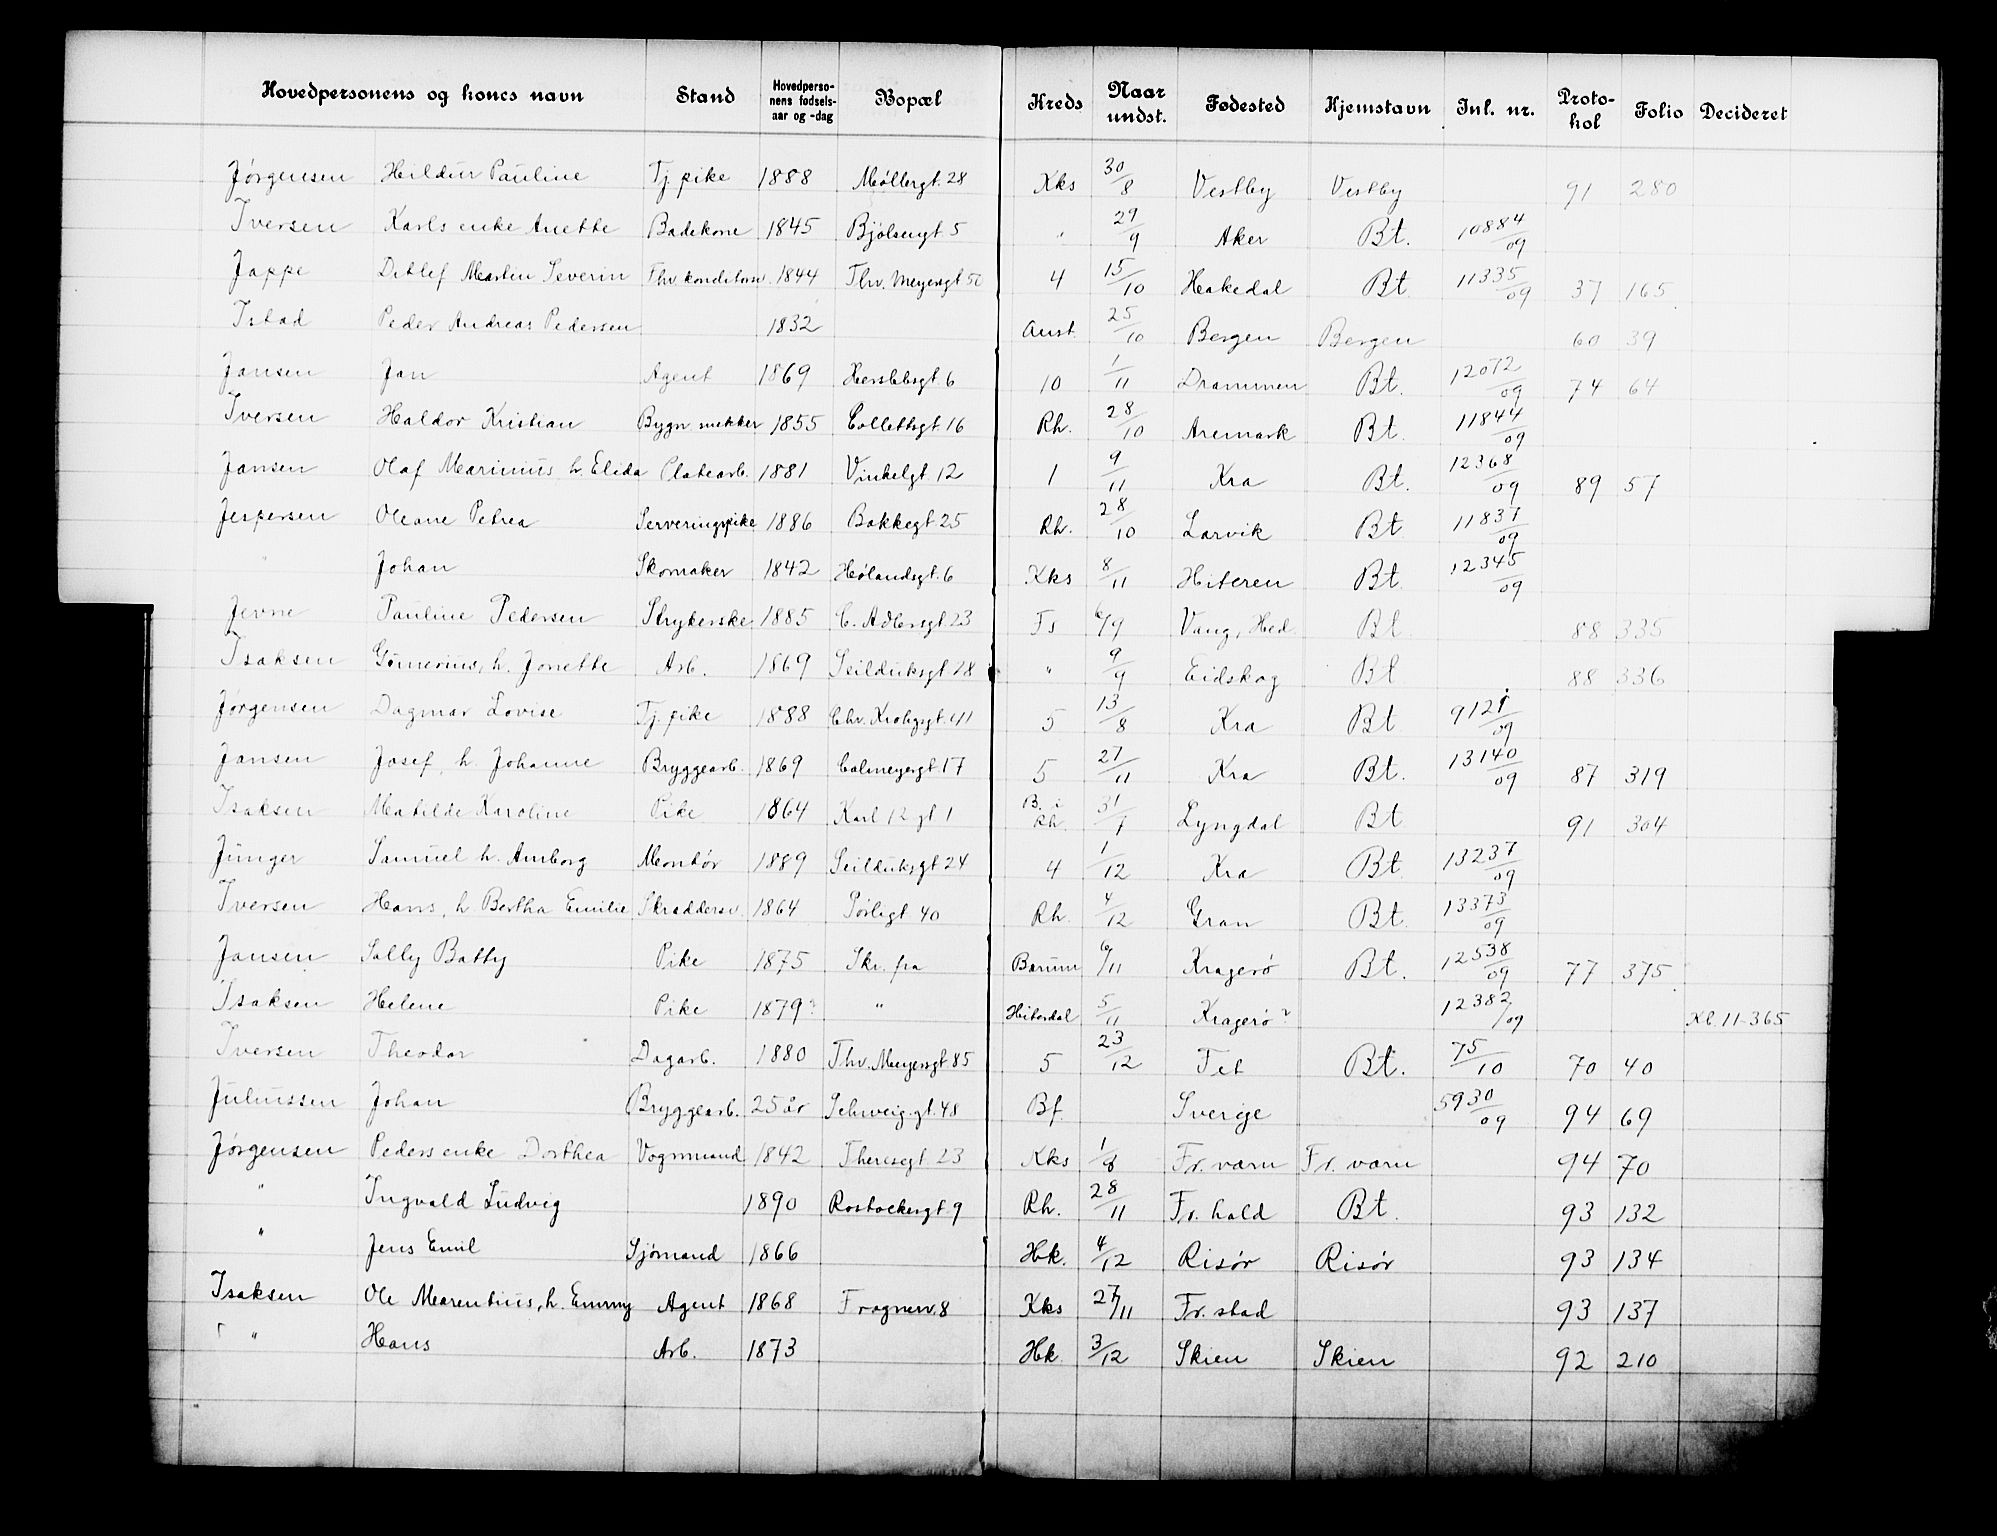 Hovedpersonens og konens navn Stand Hovedpersonens fødselsaar og -dag Bopæl Kreds Naar undst. Fødested Hjemstavn Inl. nr. Protokol Folio Decideret
Jørgensen Hildur Pauline Tj. pike 1888 Møllergt. 28 Kks 30/8 Vestby Vestby 91 280
Iversen Karls enke Anette Badekone 1845 Bjølsengt 5 " 29/9 Aker Bt. 10884/09
Jappe Detlef Martin Severin Fhv. konditorsv. 1844 Thv. Meyersgt 50 4 15/10 Hakedal Bt 11335/09 37 165
Istad Peder Andreas Pedersen 1832 Aust. 25/10 Bergen Bergen 60 39
Jansen Jan Agent 1869 Herslebsgt. 6 10 1/11 Drammen Bt. 12072/09 74 64
Iversen Haldor Kristian Bygn snekker 1855 Collettsgt. 16 Rh. 28/10 Aremark Bt. 11844/09
Jansen Olaf Marinius h. Elida Platearb. 1881 Vinkelgt. 12 1 9/11 Kra Bt. 12368/09 89 57
Jespersen Oleane Petrea Serveringspike 1886 Bakkegt. 25 Rh. 28/10 Larvik Bt 11837/09
" Johan Skomaker 1842 Hølandsgt. 6 Kks 8/11 Hiteren Bt. 12345/09
Jevne Pauline Pedersen Strykerske 1885 C. Adlersgt. 23 Fs 6/9 Vang, Hed. Bt 88 335
Isaksen Gumerius, h. Jonette Arb. 1869 Seilduksgt. 28 " 9/9 Eidskog Bt 88 336
Jørgensen Dagmar Lovise Tj. pike 1888 Chr. Krohgsgt. 41 5 13/8 Kra Bt. 9121/09
Jansen Josef, h. Johanne Bryggearb. 1869 Calmeyersgt. 17 5 27/11 Kra Bt. 13140/09 87 319
Isaksen Matilde Karoline Pike 1864 Karl 12 gt 1 B. i Rh. 31/8 Lyngdal Bt 91 304
Junger Samuel h. Amborg Montør 1889 Seilduksgt 24 4 1/12 Kra Bt. 13237/09
Iversen Hans, h. Bertha Emilie Skraddersv. 1864 Søiligt 40 Rh. 4/12 Gran Bt. 13373/09
Jansen Sally Batty Pike 1875 Skr. fra Bærum 6/11 Kragerø Bt. 12538/09 77 375
Isaksen Helene Pike 1879? " Hiterdal 5/11 Kragerø? 12382/09 Kl. 11-365
Iversen Theodor Dagarb. 1880 Thv. Meyersgt. 85 5 23/12 Fet Bt. 75/10 70 40
Juliussen Johan Bryggearb. 25 år Schweig.gt. 48 Bf. Sverige 5930/09 94 69
Jørgensen Peders enke Dorthea Vognmand 1842 Theresegt. 23 Kks 1/8 Fr. værn Fr. værn 94 70
" Ingvald Ludvig 1890 Rostockergt. 9 Rh. 28/11 Fr. hald Bt. 93 132
" Jens Emil Sjømand 1866 Hk. 4/12 Risør Risør 93 134
Isaksen Ole Marentius, h. Emmy Agent 1868 Frognerv. 8 Kks 27/11 Fr. stad 93 137
" Hans Arb. 1873 Hk. 3/12 Skien Skien 92 210